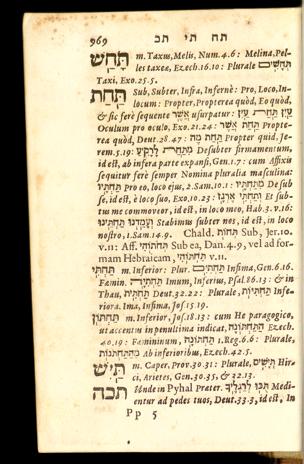 969 תח תי תכ
תַּחַשׁ m. Taxus, Melis, Num. 4.6: Melina. Pel-
les taxeæ, Ezech. 16.10: Plurale תְּחָשִׁים
Taxi, Exo. 25.5.
תַּחַת Sub, Subter, Infra, Infernè: Pro, Loco, In-
locum: Propter, Propterea quòd, Eo quòd,
& sic ferè sequente אֲשֶׁר usurpatur: עַיִן תַּחַת עַיִן
Oculum pro oculo, Exo. 21.24: תַּחַת אֲשֶׁר Propte-
rea quòd, Deut. 28.47: תַּחַת מֶה Propter quid, Je-
rem. 5.19: מִתַּחַת לָרָקִיעַ Desubter firmamentum,
id est, ab infera parte expansi, Gen. 1.7: cum Affixis
sequitur ferè semper Nomina pluralia masculina:
תַּחְתָּיו Pro eo, loco ejus, 2. Sam. 10.1: מִתַּחְתָּיו De sub
se, id est, è loco suo, Exo. 10.23: וְתַחְתַּי אֶרְגָּז Et sub-
tus me commoveor, id est, in loco meo, Hab. 3. v. 16:
וְעָמַדְנוּ תַחְתֵּינוּ Stabimus subter nos, id est, in loco
nostro, 1. Sam. 14.9. Chald. תְּחוֹת Sub, Jer. 10.
v. 11: Aff. תְּחֹתוֹהִי Sub ea, Dan. 4.9, vel ad for-
mam Hebraicam, תַּחְתּוֹהִי v. 11.
תַּחְתִּי m. Inferior: Plur. תַּחְתִּיִּים Infima, Gen. 6.16.
Fœmin. תַּחְתִּיָּה Imum, Inferius, Psal. 86.13: & in
Thau, תַּחְתִּית Deut. 32.22: Plurale תַּחְתִּיּוֹת, Infe-
riora. Ima, Infima, Jos. 15.19.
תַּחְתּוֹן m. Inferior, Jos. 18.13: cum He paragogico,
ut accentus in penultima indicat, הַתַּחְתּוֹנָה Ezech.
40.19: Fœmininum, תַּחְתּוֹנָה 1. Reg. 6.6: Plurale,
מֵהַתַּחְתֹּנוֹת Ab inferioribus, Ezech. 42.5.
תַּיִשׁ m. Caper, Prov. 30.31: Plurale תְּיָשִׁים, Hir-
ci, Arietes, Gen. 30.35, & 32.13.
תכה inde in Pyhal Præter. תֻּכּוּ לְרַגְלֶךָ Medi-
entur ad pedes tuos, Deut. 33.3, id est, In
Pp 5